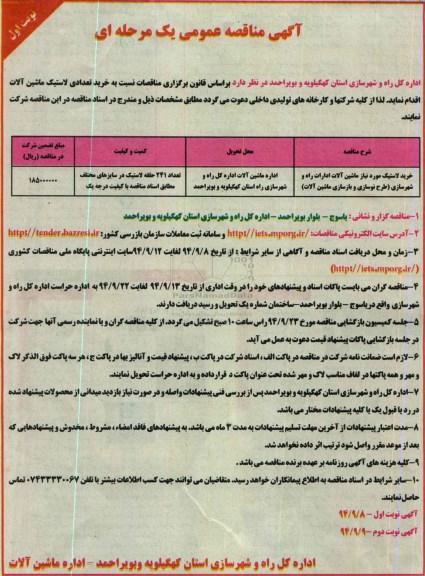 نوبت اول
آگهی مناقصه عمومی یک مرحله ای
اداره کل راه و شهرسازی استان کهگیلویه و بویراحمد در نظر دارد براساس قانون برگزاری مناقصات نسبت به خرید تعدادی لاستیک ماشین آلات
اقدام نماید. لذا از کلیه شرکتها و کارخانه های تولیدی داخلی دعوت می گردد مطابق مشخصات ذیل و مندرج در اسناد مناقصه در این مناقصه شرکت
نمایند.
شرح مناقصه | محل تحویل | کمیت و کیفیت | مبلغ تضمین شرکت در مناقصه (ریال)
خرید لاستیک مورد نیاز ماشین آلات ادارات راه و شهرسازی (طرح نوسازی و بازسازی ماشین آلات) | اداره ماشین آلات اداره کل راه و شهرسازی راه استان کهگیلویه و بویراحمد | تعداد ۲۴۱ حلقه لاستیک در سایزهای مختلف مطابق اسناد مناقصه با کیفیت درجه یک | ۱۸۵۰۰۰۰۰۰
۱-مناقصه گزار و نشانی : یاسوج - بلوار بویراحمد - اداره کل راه و شهرسازی استان کهگیلویه و بویراحمد
۲-آدرس سایت الکترونیکی مناقصات: http//iets.mporg.ir/ و سامانه ثبت معاملات سازمان بازرسی کشور: http//tender.bazresi.ir
۳-زمان و محل دریافت اسناد مناقصه و آگاهی از سایر شرایط : از تاریخ ۹۴/۹/۸ لغایت ۹۴/۹/۱۲سایت اینترنتی پایگاه ملی مناقصات کشوری
(http//iets.mporg.ir/)
۴-مناقصه گران می بایست پاکات اسناد و پیشنهادهای خود را در وقت اداری از تاریخ ۹۴/۹/۱۳ لغایت ۹۴/۹/۲۲ به اداره حراست اداره کل راه و
شهرسازی واقع دریاسوج - بلوار بویراحمد-ساختمان شماره یک تحویل و رسید دریافت دارند.
۵-جلسه کمیسیون بازگشایی مناقصه مورخ ۹۴/۹/۲۳ راس ساعت ۱۰ صبح تشکیل می گردد. از کلیه مناقصه گران و یا نماینده رسمی آنها جهت شرکت
در جلسه بازگشایی پاکات پیشنهاد قیمت دعوت به عمل می آید.
۶-لازم است ضمانت نامه شرکت در مناقصه در پاکت الف ، اسناد شرکت در پاکت ب ، پیشنهاد قیمت و آنالیز بها در پاکت ج ، هر سه پاکت فوق الذکر لاک
و مهر و همه پاکتها در لفاف مناسب لاک و مهر شده تحت عنوان پاکت د قرارداده و به اداره حراست تحویل نمایند.
۷-اداره کل راه و شهرسازی استان کهگیلویه و بویراحمد پس از بررسی فنی پیشنهادات واصله و در صورت نیاز بازدید میدانی از محصولات پیشنهاد شده
در رد یا قبول یک یا کلیه پیشنهادات مختار می باشد.
۸-مدت اعتبار پیشنهادات از آخرین مهلت تسلیم پیشنهادات به مدت ۳ ماه می باشد. به پیشنهادهای فاقد امضاء ، مشروط ، مخدوش و پیشنهادهایی که
بعد از موعد مقرر واصل شود ترتیب اثر داده نخواهد شد.
۹-کلیه هزینه های آگهی روزنامه بر عهده برنده مناقصه می باشد.
۱۰-سایر شرایط در اسناد مناقصه به اطلاع پیمانکاران خواهد رسید. متقاضیان می توانند جهت کسب اطلاعات بیشتر با تلفن ۰۷۴۳۳۳۳۰۰۶۷ تماس
حاصل نمایند.
آگهی نوبت اول - ۹۴/۹/۸
آگهی نوبت دوم -۹۴/۹/۹
اداره کل راه و شهرسازی استان کهگیلویه وبویراحمد - اداره ماشین آلات